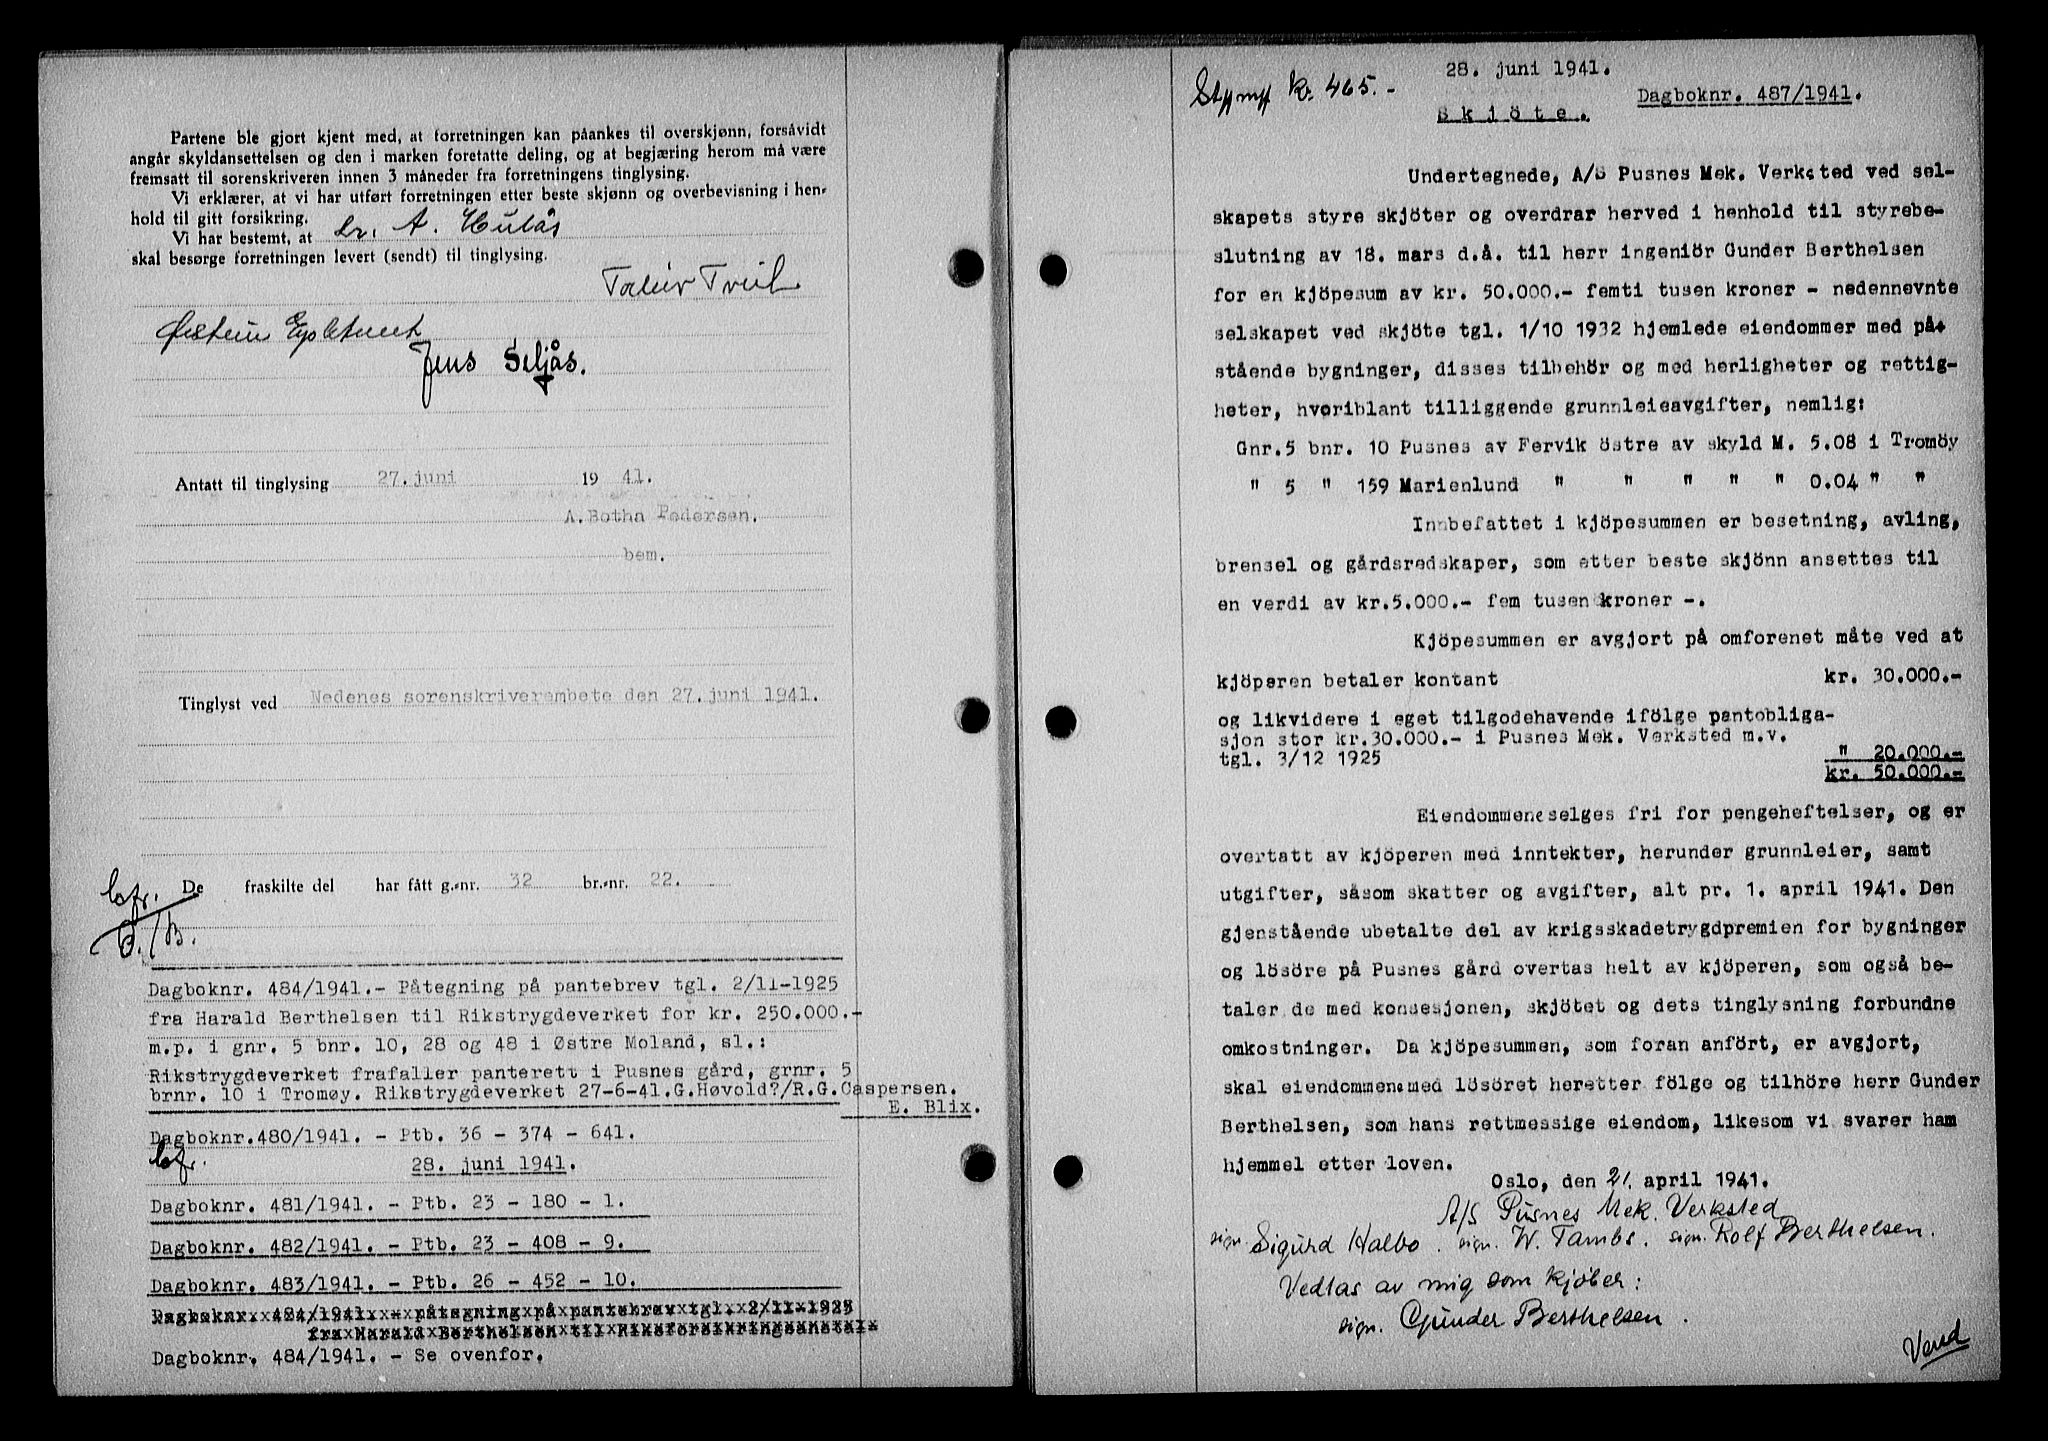 Partene ble gjort kjent med, at forretningen kan påankes til overskjønn, forsåvidt
angår skyldansettelsen og den i marken foretatte deling, og at begjæring herom må være
fremsatt til sorenskriveren innen 3 måneder fra forretningens tinglysing.
Vi erklærer, at vi har utført forretningen etter beste skjønn og overbevisning i hen-
hold til gitt forsikring.
Vi har bestemt, at Lr. A. Hulås
skal besørge forretningen levert (sendt) til tinglysing.
Jens Seljås.
Antatt til tinglysing 27. juni 19 41.
A. Botha Pedersen.
bem.
Tinglyst ved Nedenes sorenskriverembete den 27. juni 1941.
De fraskilte del har fått g.-nr. 32 br.-nr. 22.
B./B.
Dagboknr. 484/1941.- Påtegning på pantebrev tgl. 2/11-1925
fra Harald Berthelsen til Rikstrygdeverket for kr. 250.000.-
m.p. i gnr. 5 bnr. 10, 28 og 48 i Østre Moland, sl.:
Rikstrygdeverket frafaller panterett i Pusnes gård, grnr. 5
brnr. 10 i Tromøy. Rikstrygdeverket 27-6-41. G. Høvold?/R.G. Caspersen.
E. Blix.
Dagboknr. 480/1941. - Ptb. 36 - 374 - 641.
28. juni 1941.
Dagboknr. 481/1941. - Ptb. 23 - 180 - 1.
Dagboknr. 482/1941. - Ptb. 23 - 408 - 9.
Dagboknr. 483/1941. - Ptb. 26 - 452 - 10.
Dagboknr. 484/1941. - påtegning på pantebrev tgl. 2/11-1925
fra Harald Berthelsen til Riksforsikringsanstal
Dagboknr. 484/1941. - Se ovenfor.
28. juni 1941.
kr. 465.-
Dagboknr. 487/1941.
Skjöte.
Undertegnede, A/S Pusnes Mek. Verksted ved sel-
skapets styre skjöter og overdrar herved i henhold til styrebe-
slutning av 18. mars d.å. til herr ingeniör Gunder Berthelsen
for en kjöpesum av kr. 50.000.- femti tusen kroner - nedennevnte
selskapet ved skjöte tgl. 1/10 1932 hjemlede eiendommer med på-
stående bygninger, disses tilbehör og med herligheter og rettig-
heter, hvoriblant tilliggende grunnleieavgifter, nemlig:
Gnr. 5 bnr. 10 Pusnes av Fervik östre av skyld M. 5.08 i Tromöy
" 5 " 159 Marienlund " " " " " 0.04 " "
Innbefattet i kjöpesummen er besetning, avling,
brensel og gårdsredskaper, som etter beste skjönn ansettes til
en verdi av kr.5.000.- fem tusen kroner -.
Kjöpesummen er avgjort på omforenet måte ved at
kjöperen betaler kontant kr. 30.000.-
og likvidere i eget tilgodehavende ifölge pantobliga-
sjon stor kr.30.000.- i Pusnes Mek. Verksted m.v.
tgl. 3/12 1925 " 20.000.-
kr. 50.000.-
Eiendommene selges fri for pengeheftelser, og er
overtatt av kjöperen med inntekter, herunder grunnleier, samt
utgifter, såsom skatter og avgifter, alt pr. 1. april 1941. Den
gjenstående ubetalte del av krigsskadetrygdpremien for bygninger
og lösöre på Pusnes gård overtas helt av kjöperen, som også be-
taler de med konsesjonen, skjötet og dets tinglysning forbundne
omkostninger. Da kjöpesummen, som foran anfört, er avgjort,
skal eiendommene med lösöret heretter fölge og tilhöre herr Gunder
Berthelsen, som hans rettmessige eiendom, likesom vi svarer ham
hjemmel etter loven.
Oslo, den 21. april 1941.
A/S Pusnes Mek. Verksted
sign. Sigurd Halbo. sign. W. Tambs. sign. Rolf Berthelsen.
Vedtas av mig som kjøber:
sign. Gunder Berthelsen.
Vend